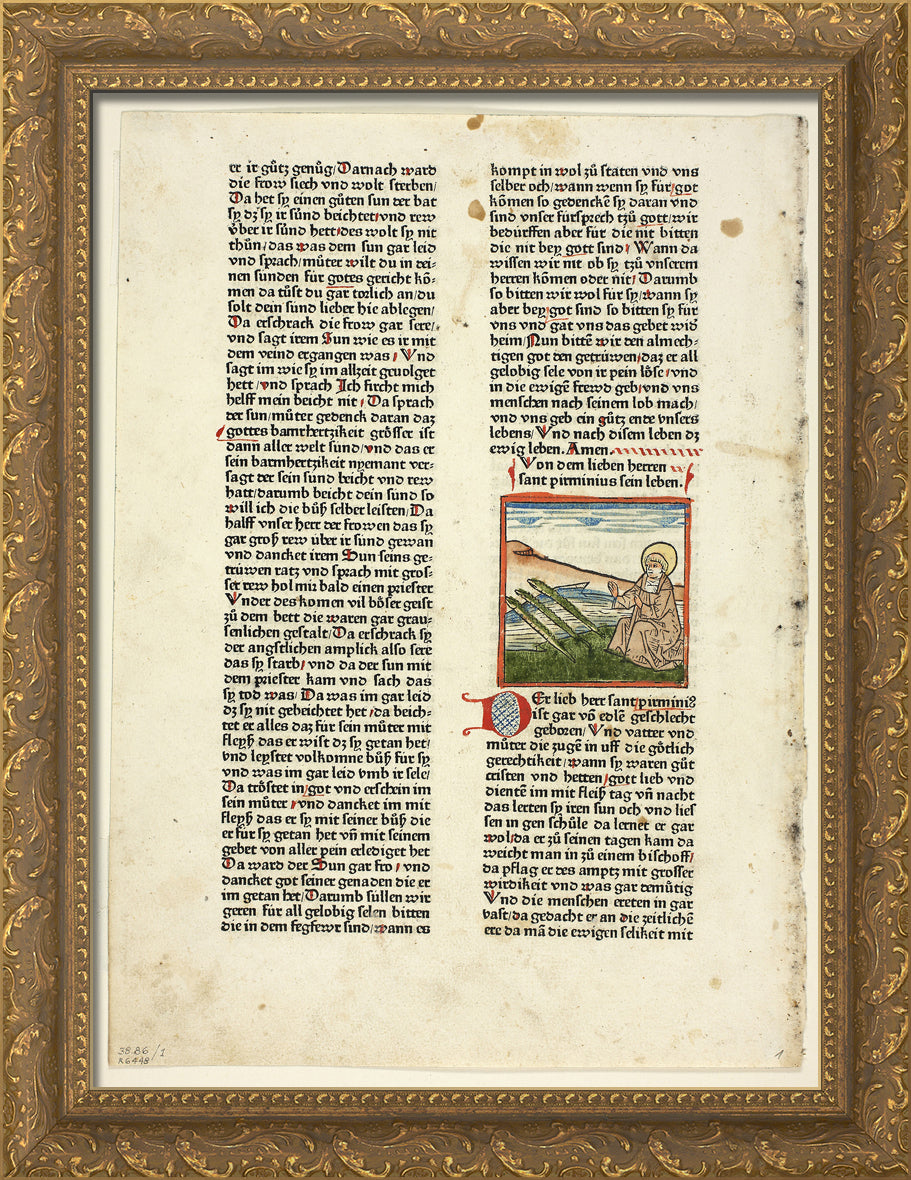 er ir gůtz genůg/Darnach ward
die frow siech vnd wolt sterben/
Da het sy einen gůten sun der bat
sy dz sy ir sünd beichtet/vnd rew
vber ir sünd hett/des wolt sy nit
thůn/das was dem sun gar leid
vnd sprach/můter wilt du in dei-
nen sunden für gotes gericht kö-
men da tůst du gar torlich an/du
solt dein sünd lieber hie ablegen/
Da erschrack die frow gar sere/
vnd sagt irem Sun wie es ir mit
dem veind ergangen was/Vnd
sagt im wie sy im allzeit geuolget
hett/vnd sprach Ich fircht mich
helff mein beicht nit/Da sprach
der sun/můter gedenck daran daz
gottes barmhertzikeit grösser ist
dann aller welt sund/vnd das er
sein barmhertzikeit nyemant ver-
sagt der sein sund beicht vnd rew
hatt/darumb beicht dein sünd so
will ich die bůß selber leisten/Da
halff vnser herr der frowen das sy
gar groß rew uber ir sünd gewan
vnd dancket irem Sun seins ge-
trüwen ratz vnd sprach mit gros-
ser rew hol mir bald einen priester
Vnder des komen vil böser geist
zů dem bett die waren gar grau-
senlichen gestalt/Da erschrack sy
der angstlichen amplick also sere
das sy starb/vnd da der sun mit
dem priester kam vnd sach das
sy tod was/Da was im gar leid
dz sy nit gebeichtet het/da beich-
tet er alles daz für sein můter mit
fleyß das er wist dz sy getan het/
vnd leystet volkomne bůß für sy
vnd was im gar leid vmb ir sele/
Da tröstet in/got vnd erschein im
sein můter/vnd dancket im mit
fleyß das er sy mit seiner bůß die
er für sy getan het vn̄ mit seinem
gebet von aller pein erlediget het
Da ward der Sun gar fro/vnd
dancket got seiner genaden die er
im getan het/Darumb süllen wir
geren für all gelobig selen bitten
die in dem fegfewr sind/wann es
kompt in wol zů staten vnd vns
selber och/wann wenn sy für/got
kōmen so gedenckē sy daran vnd
sind vnser fürsprech tzů gott/wir
bedürffen aber für die nit bitten
die nit bey gott sind/Wann da
wissen wir nit ob sy tzů vnserem
herren kōmen oder nit/Darumb
so bitten wir wol für sy/wann sy
aber bey/got sind so bitten sy für
vns vnd gat vns das gebet wid
heim/Nun bittē wir den almech-
tigen got den getrüwen/daz er all
gelobig sele von ir pein löse/vnd
in die ewigē frewd geb/vnd vns
menschen nach seinem lob mach/
vnd vns geb ein gůtz ende vnsers
lebens/Vnd nach disem leben dz
ewig leben. Amen.
Von dem lieben herren
sant pirminius sein leben.
DEr lieb herr sant/pirmini9
ist gar vō edlē geschlecht
geboren/Vnd vatter vnd
můter die zugē in uff die götlich
gerechtikeit/wann sy waren gůt
cristen vnd hetten/gott lieb vnd
dientē im mit fleiß tag vn̄ nacht
das lerten sy iren sun och vnd lies
sen in gen schůle da lernet er gar
wol/da er zů seinen tagen kam da
weicht man in zů einem bischoff/
da pflag er des amptz mit grosser
wirdikeit vnd was gar demütig
Vnd die menschen ereten in gar
vast/da gedacht er an die zeitlichē
ere da mā die ewigen selikeit mit
38.86/1
K6448
1